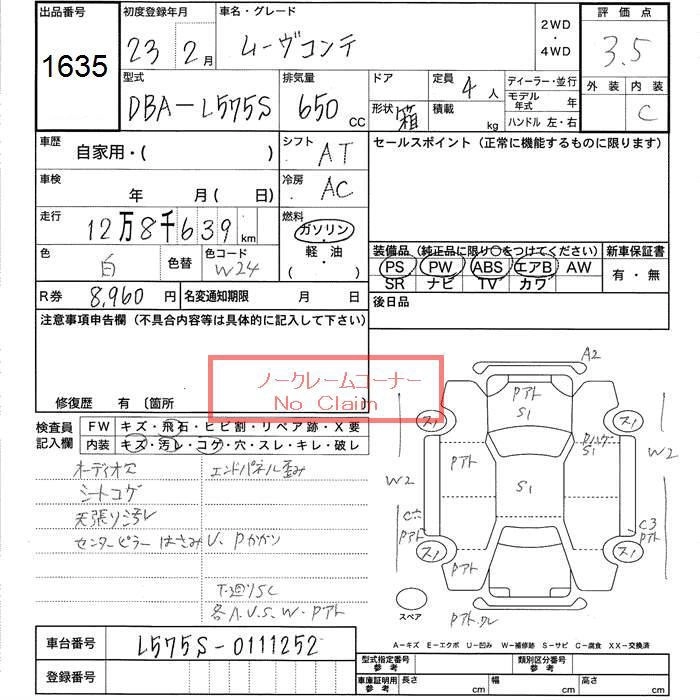 出品番号 初度登録年月 車名・グレード 2WD・4WD 評価点
1635 23 2月 ムーヴコンテ 3.5
型式 排気量 ドア 定員 ディーラー・並行 外装 内装
DBA-L575S 650 CC 形状 箱 4人 積載 kg モデル年式 年 C
ハンドル 左・右
車歴 自家用・( ) シフト AT セールスポイント(正常に機能するものに限ります)
車検 年 月(日) 冷房 AC
走行 12万8千639km 燃料 ガソリン・軽油・( )
色 白 色替 色コード W24
装備品(純正品に限り○をつけてください) 新車保証書
PS PW ABS エアB AW 有・無
SR ナビ TV カワ
R券 8,960円 名変通知期限 月 日 後日品
注意事項申告欄(不具合内容等は具体的に記入して下さい)
ノークレームコーナー
No Claim
修復歴 有〔箇所
検査員記入欄 FW キズ・飛石・ヒビ割・リペア跡・X要
内装 キズ・汚レ・コゲ・穴・スレ・キレ・破レ
オーディオ穴 エンドパネル歪み
シートコゲ
天張り汚レ
センターピラーはさみU、Pかがり
下廻りSC
各A.U.S.W.Pアト
A2
Pアト
S1
ス1 ス1
Pハゲ
S1
W2 Pアト S1 W2
C六 C3
Pアト Pアト
ス1 ス1
Pアト Pアト
スペア
Pアト.ワレ
A-キズ E-エクボ U-凹み W-補修跡 S-サビ C-腐食 XX-交換済
車台番号 L575S-0111252
登録番号
型式指定番号 参考 類別区分番号 参考
車庫証明用 参考 長さ cm 幅 cm 高さ cm